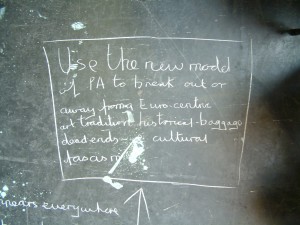 Use the new model
of PA to break out or
away from Euro-centric
art tradition historical-baggage
dead-ends - cultural
fascism
everywhere